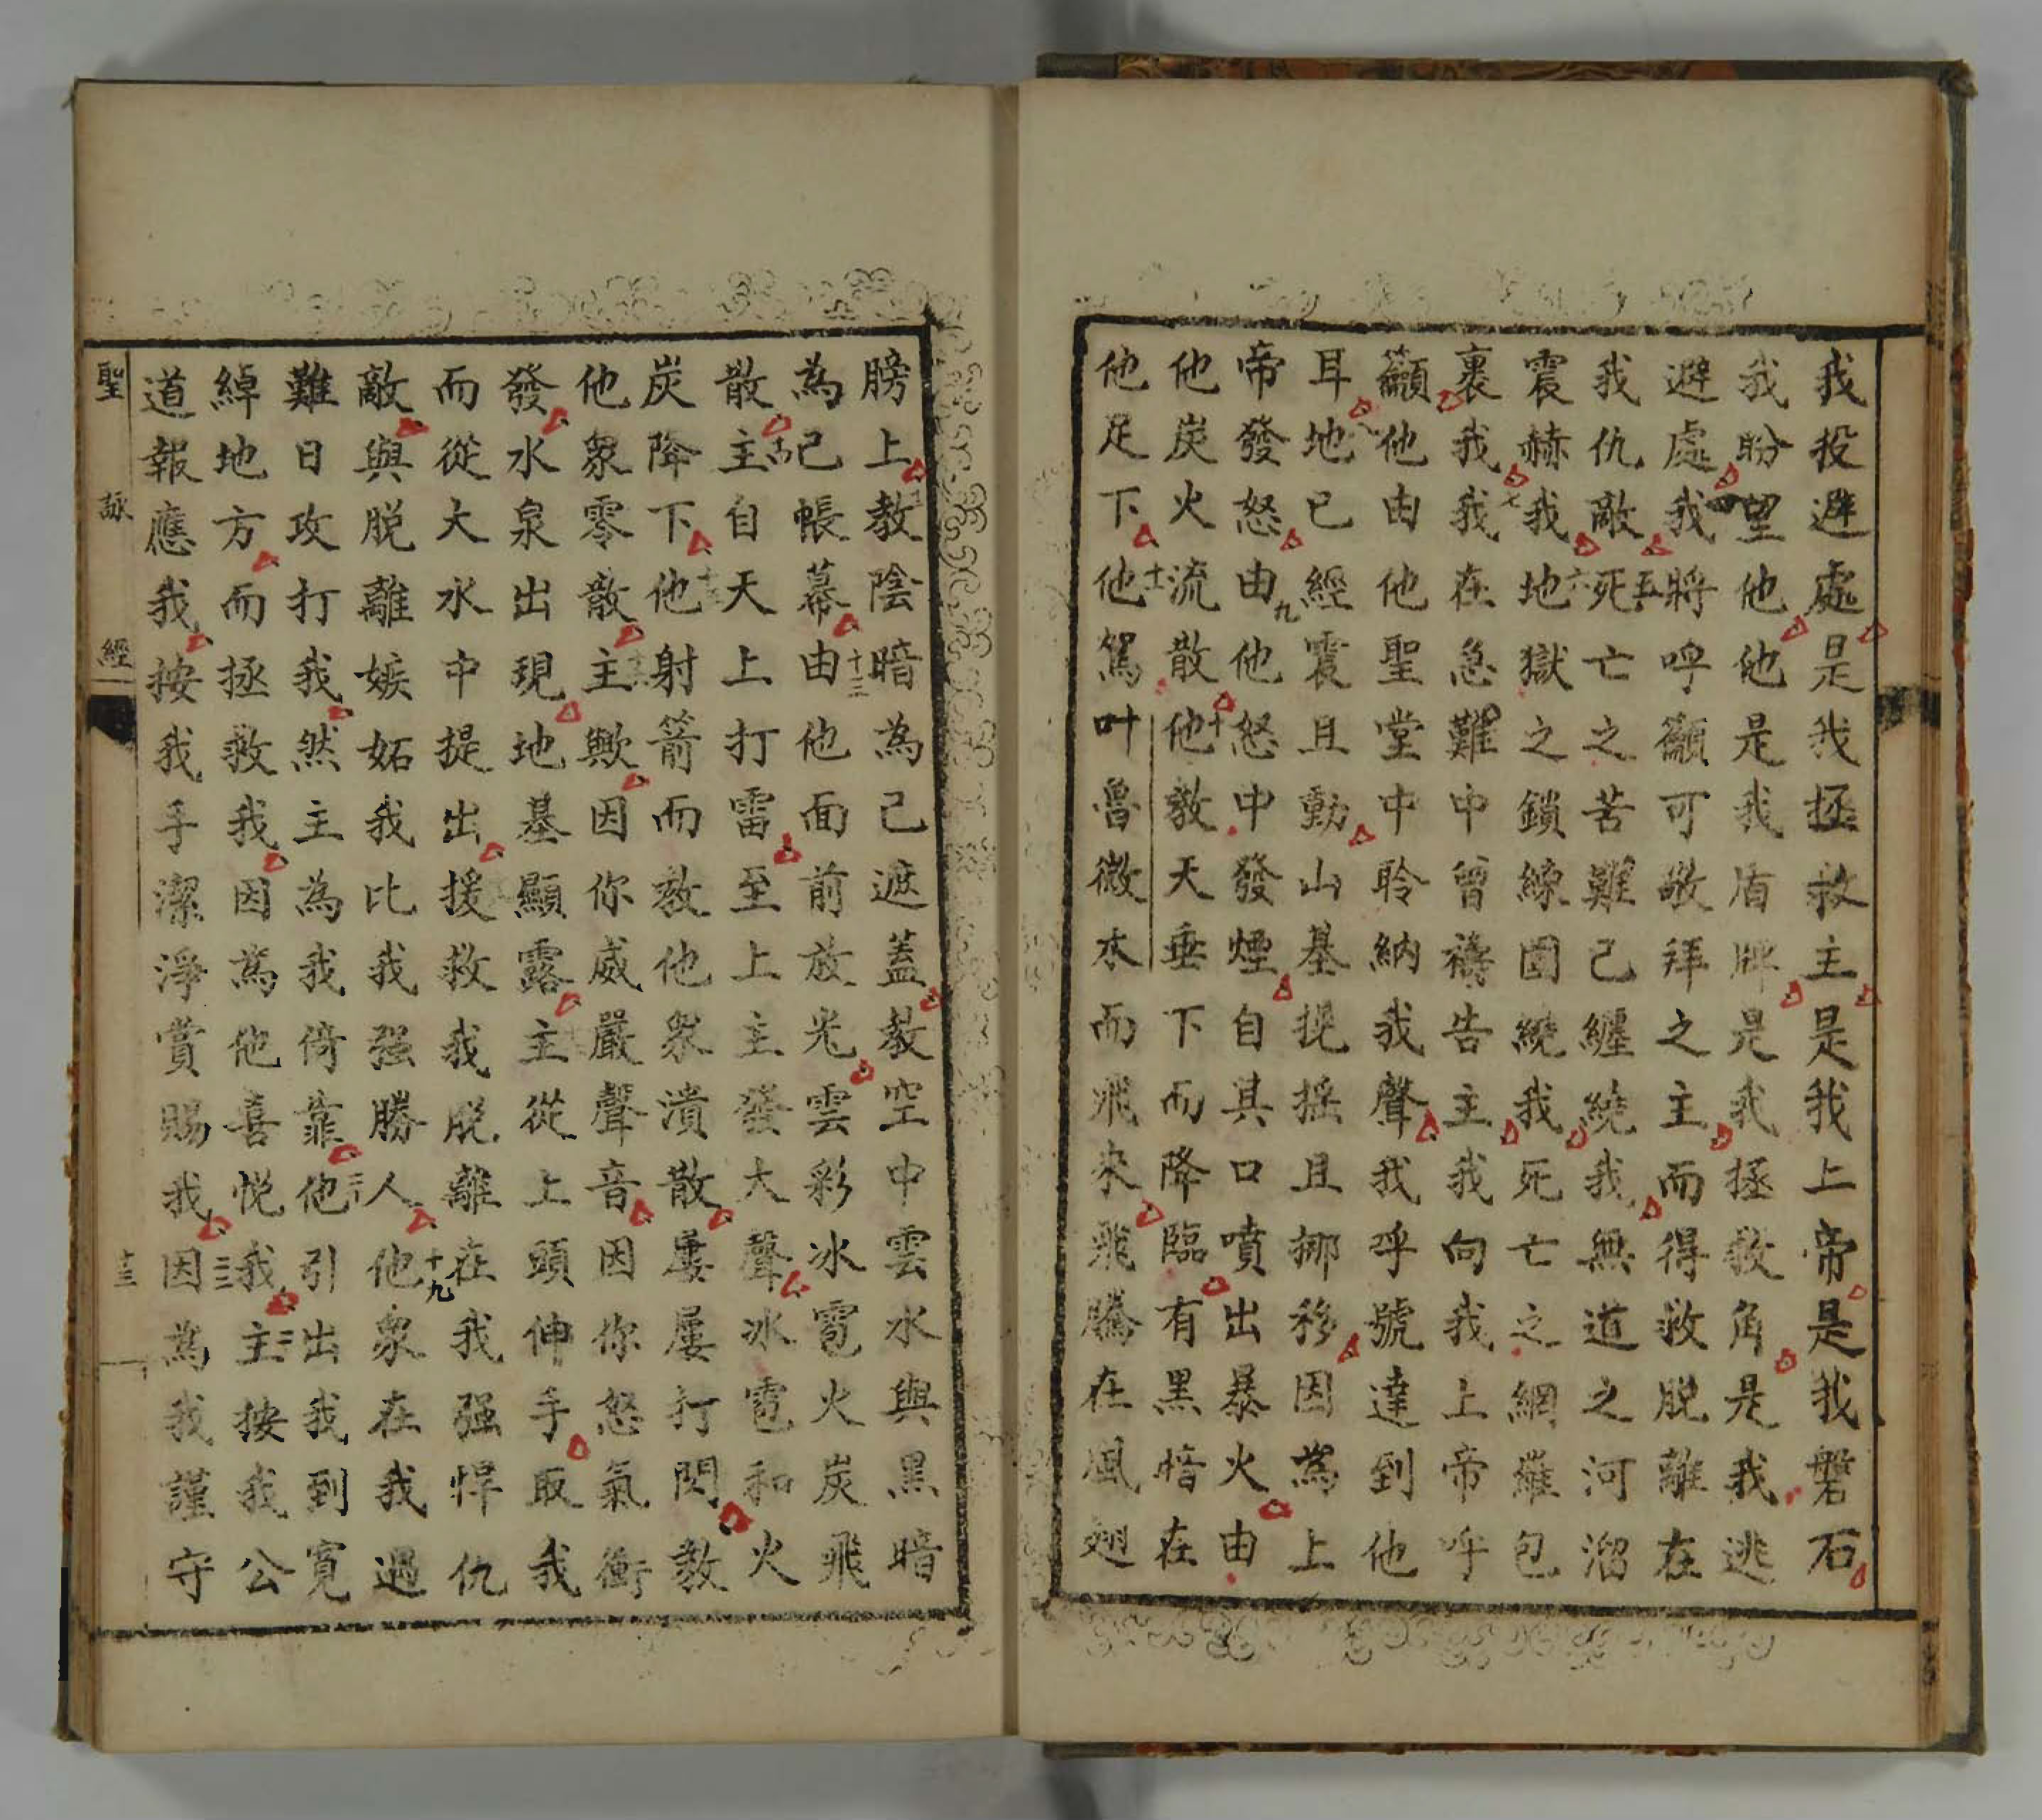 我投避處是我拯救主是我上帝是我磐石
我盼望他他是我盾牌是我拯救角是我逃
避處我四將呼籲可敬拜之主而得救脫離在
我仇敵死五亡之苦難己纏繞我無道之河溜
震赫我地六獄之鎖練圍繞我死亡之網羅包
裹我我七在急難中曾禱告主我向我上帝呼
籲他由他聖堂中聆納我聲我呼號達到他
耳地八已經震且動山基挠搖且挪移因為上
帝發怒由九他怒中發煙自其口噴出暴火由
他炭火流散他十教天垂下而降臨有黑暗在
他足下他十一駕叶魯微木而飛來飛騰在風翅
膀上教陰暗為己遮蓋教空中雲水與黑暗
為己帳幕由十三他面前放光雲彩冰雹火炭飛
散主十四自天上打雷至上主發大聲冰雹和火
炭降下他射箭而教他衆潰散屢屢打閃教
他衆零散主歟因你威嚴聲音因你怒氣衝
發水泉出現地基顯露主從上頭伸手取我
而從大水中提出援救我脫離在我强悍仇
敵與脫離嫉妬我比我强勝人他十九衆在我遇
難日攻打我然主為我倚靠他二十引出我到寬
綽地方而拯救我因為他喜悅我主二一按我公
道報應我按我手潔淨賞賜我因二二為我謹守
聖詠經
十三